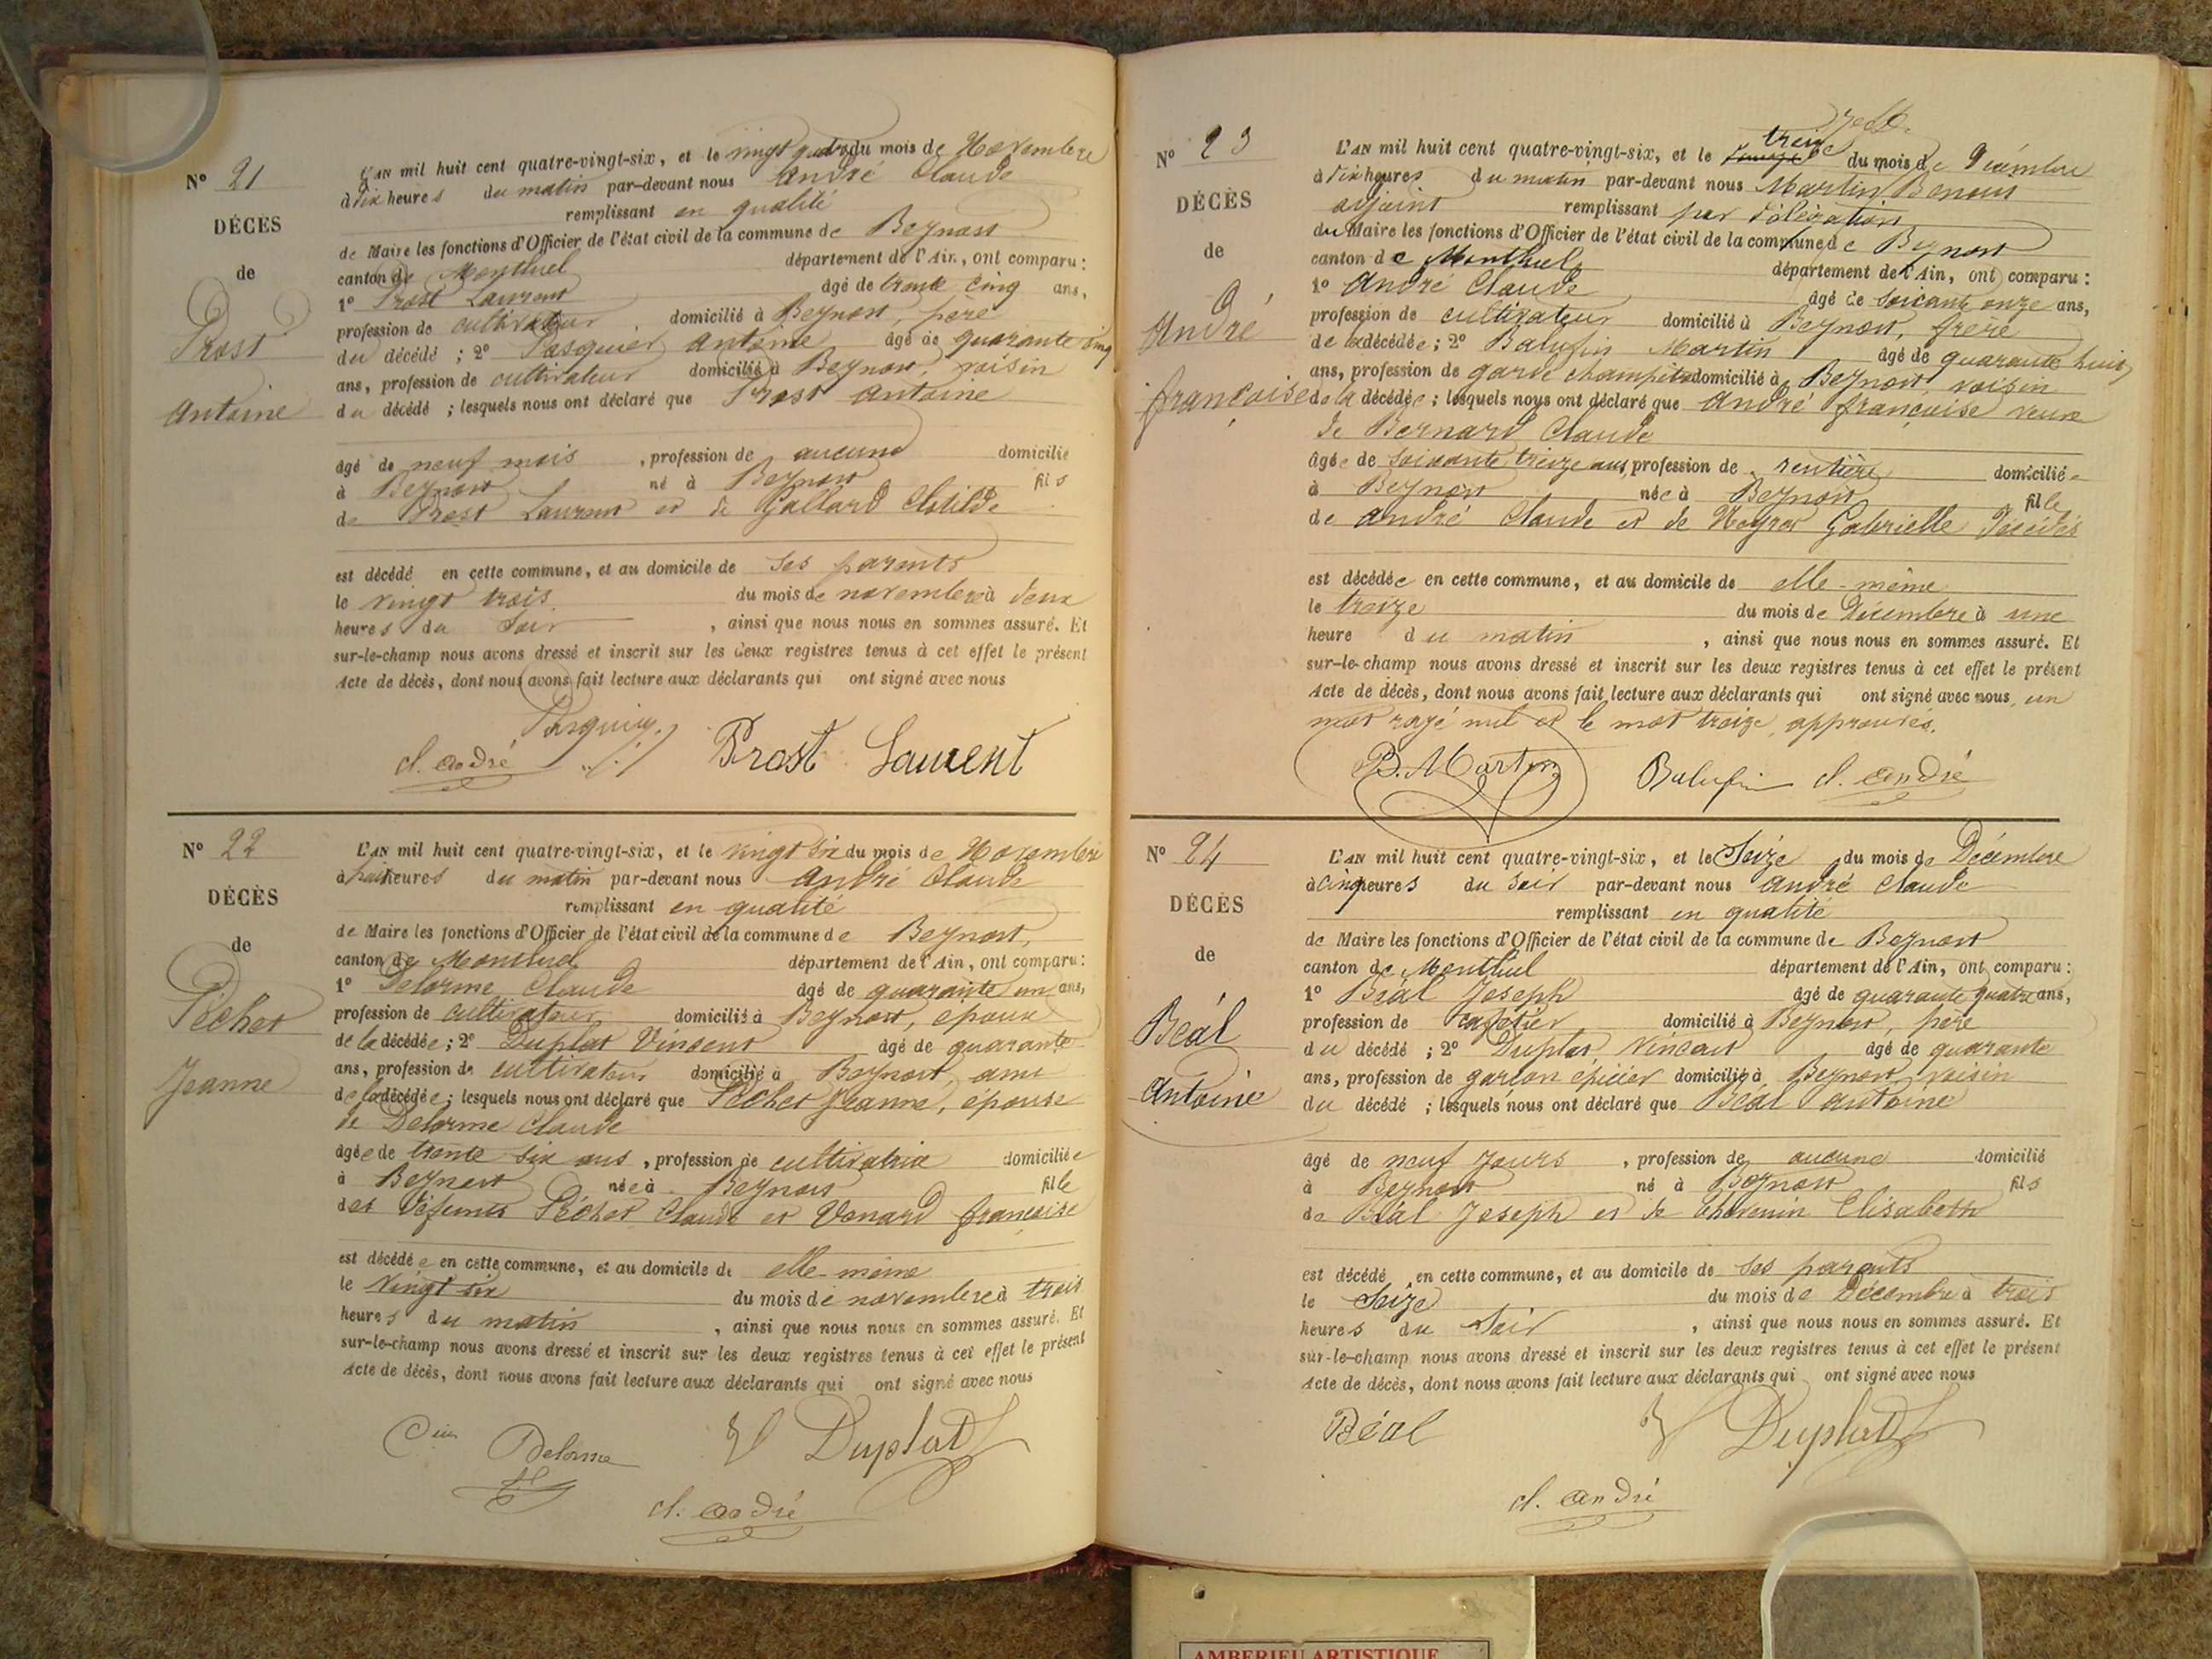 N° 21
DÉCÈS
de
Prost
Antoine
L'AN mil huit cent quatre-vingt-six, et le vingt quatre du mois de Novembre
à dix heures du matin par-devant nous André Claude
remplissant en qualité
de Maire les fonctions d'Officier de l'état civil de la commune de Beynost
canton de Montluel département de l'Ain, ont comparu :
1° Prost Laurent âgé de trente cinq ans,
profession de cultivateur domicilié à Beynost, père
du décédé ; 2° Pasquier Antoine âgé de quarante cinq
ans, profession de cultivateur domicilié à Beynost, voisin
du décédé ; lesquels nous ont déclaré que Prost Antoine
âgé de neuf mois, profession de aucune domicilié
à Beynost né à Beynost fils
de Prost Laurent et de Gallard Clotilde
est décédé en cette commune, et au domicile de ses parents
le vingt trois du mois de novembre à deux
heures du soir, ainsi que nous nous en sommes assuré. Et
sur-le-champ nous avons dressé et inscrit sur les deux registres tenus à cet effet le présent
Acte de décès, dont nous avons fait lecture aux déclarants qui ont signé avec nous
Pasquier
cl. andré Prost Laurent
N° 22
DÉCÈS
de
Péchet
Jeanne
L'AN mil huit cent quatre-vingt-six, et le vingt six du mois de Novembre
à huit heures du matin par-devant nous André Claude
remplissant en qualité
de Maire les fonctions d'Officier de l'état civil de la commune de Beynost,
canton de Montluel département de l'Ain, ont comparu :
1° Delorme Claude âgé de quarante un ans,
profession de cultivateur domicilié à Beynost, époux
de la décédée ; 2° Duplat Vincent âgé de quarante
ans, profession de cultivateur domicilié à Beynost, ami
de la décédée ; lesquels nous ont déclaré que Péchet Jeanne, épouse
de Delorme Claude
âgée de trente six ans, profession de cultivatrice domiciliée
à Beynost née à Beynost fille
des défunts Péchet Claude et Venard françoise
est décédée en cette commune, et au domicile de elle-même
le vingt six du mois de novembre à trois
heures du matin, ainsi que nous nous en sommes assuré. Et
sur-le-champ nous avons dressé et inscrit sur les deux registres tenus à cet effet le présent
Acte de décès, dont nous avons fait lecture aux déclarants qui ont signé avec nous
Delorme V Duplat
cl. andré
N° 23
DÉCÈS
de
André
françoise
treize
L'AN mil huit cent quatre-vingt-six, et le du mois de Décembre
à dix heures du matin par-devant nous Martin Benoit
adjoint remplissant par délégation
du Maire les fonctions d'Officier de l'état civil de la commune de Beynost
canton de Montluel département de l'Ain, ont comparu :
1° André Claude âgé de soixante onze ans,
profession de cultivateur domicilié à Beynost, frère
de la décédée ; 2° Balufin Martin âgé de quarante huit
ans, profession de garde champêtre domicilié à Beynost voisin
de la décédée ; lesquels nous ont déclaré que André françoise veuve
de Bernard Claude
âgée de soixante treize ans, profession de rentière domiciliée
à Beynost née à Beynost fille
de André Claude et de Neyret Gabrielle décédés
est décédée en cette commune, et au domicile de elle-même
le treize du mois de Décembre à une
heure du matin, ainsi que nous nous en sommes assuré. Et
sur-le-champ nous avons dressé et inscrit sur les deux registres tenus à cet effet le présent
Acte de décès, dont nous avons fait lecture aux déclarants qui ont signé avec nous, un
mot rayé nul et le mot treize, approuvés.
B. Martin Balufin cl. andré
N° 24
DÉCÈS
de
Béal
Antoine
L'AN mil huit cent quatre-vingt-six, et le Seize du mois de Décembre
à cinq heures du soir par-devant nous André Claude
remplissant en qualité
de Maire les fonctions d'Officier de l'état civil de la commune de Beynost
canton de Montluel département de l'Ain, ont comparu :
1° Béal Joseph âgé de quarante quatre ans,
profession de cafetier domicilié à Beynost, père
du décédé ; 2° Duplat Vincent âgé de quarante
ans, profession de garçon épicier domicilié à Beynost voisin
du décédé ; lesquels nous ont déclaré que Béal Antoine
âgé de neuf jours, profession de aucune domicilié
à Beynost né à Beynost fils
de Béal Joseph et de Thévenin Elisabeth
est décédé en cette commune, et au domicile de ses parents
le Seize du mois de Décembre à trois
heures du soir, ainsi que nous nous en sommes assuré. Et
sur-le-champ nous avons dressé et inscrit sur les deux registres tenus à cet effet le présent
Acte de décès, dont nous avons fait lecture aux déclarants qui ont signé avec nous
Béal V Duplat
cl. andré
AMBERIEU ARTISTIQUE